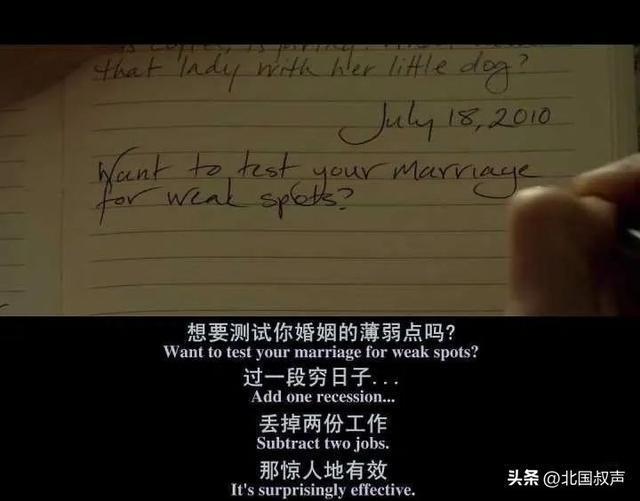 that lady with her little dog?
July 18, 2010
Want to test your marriage
for weak spots?
想要测试你婚姻的薄弱点吗?
Want to test your marriage for weak spots?
过一段穷日子...
Add one recession...
丢掉两份工作
Subtract two jobs.
那惊人地有效
It's surprisingly effective.
头条 @北国叔声